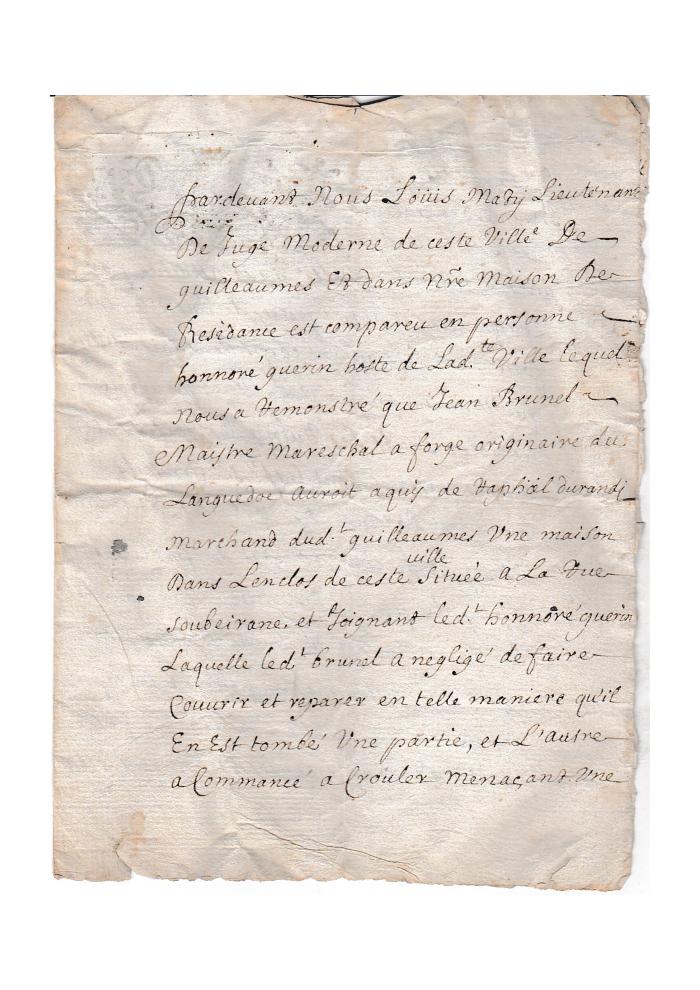 Pardevant Nous Loüis Matÿ Lieutenant
De Juge Moderne de ceste Ville De
guilleaumes Et dans Nre Maison De
Residance est compareu en personne
honnoré guerin hoste de Lad.te Ville lequel
Nous a Remonstré que Jean Brunel
Maistre Mareschal a forge originaire du
Languedoc auroit aquis de Raphöel durandi
Marchand dud.t guilleaumes Une maison
Dans Lenclos de ceste ville Située a La Rue
soubeirane et Joignant led.t honnoré guerin
Laquelle led.t brunel a negligé de faire
Couurir et reparer en telle maniere qu'il
En Est tombé Une partie, et L'autre
a Commancé a Crouler Menaçant Une